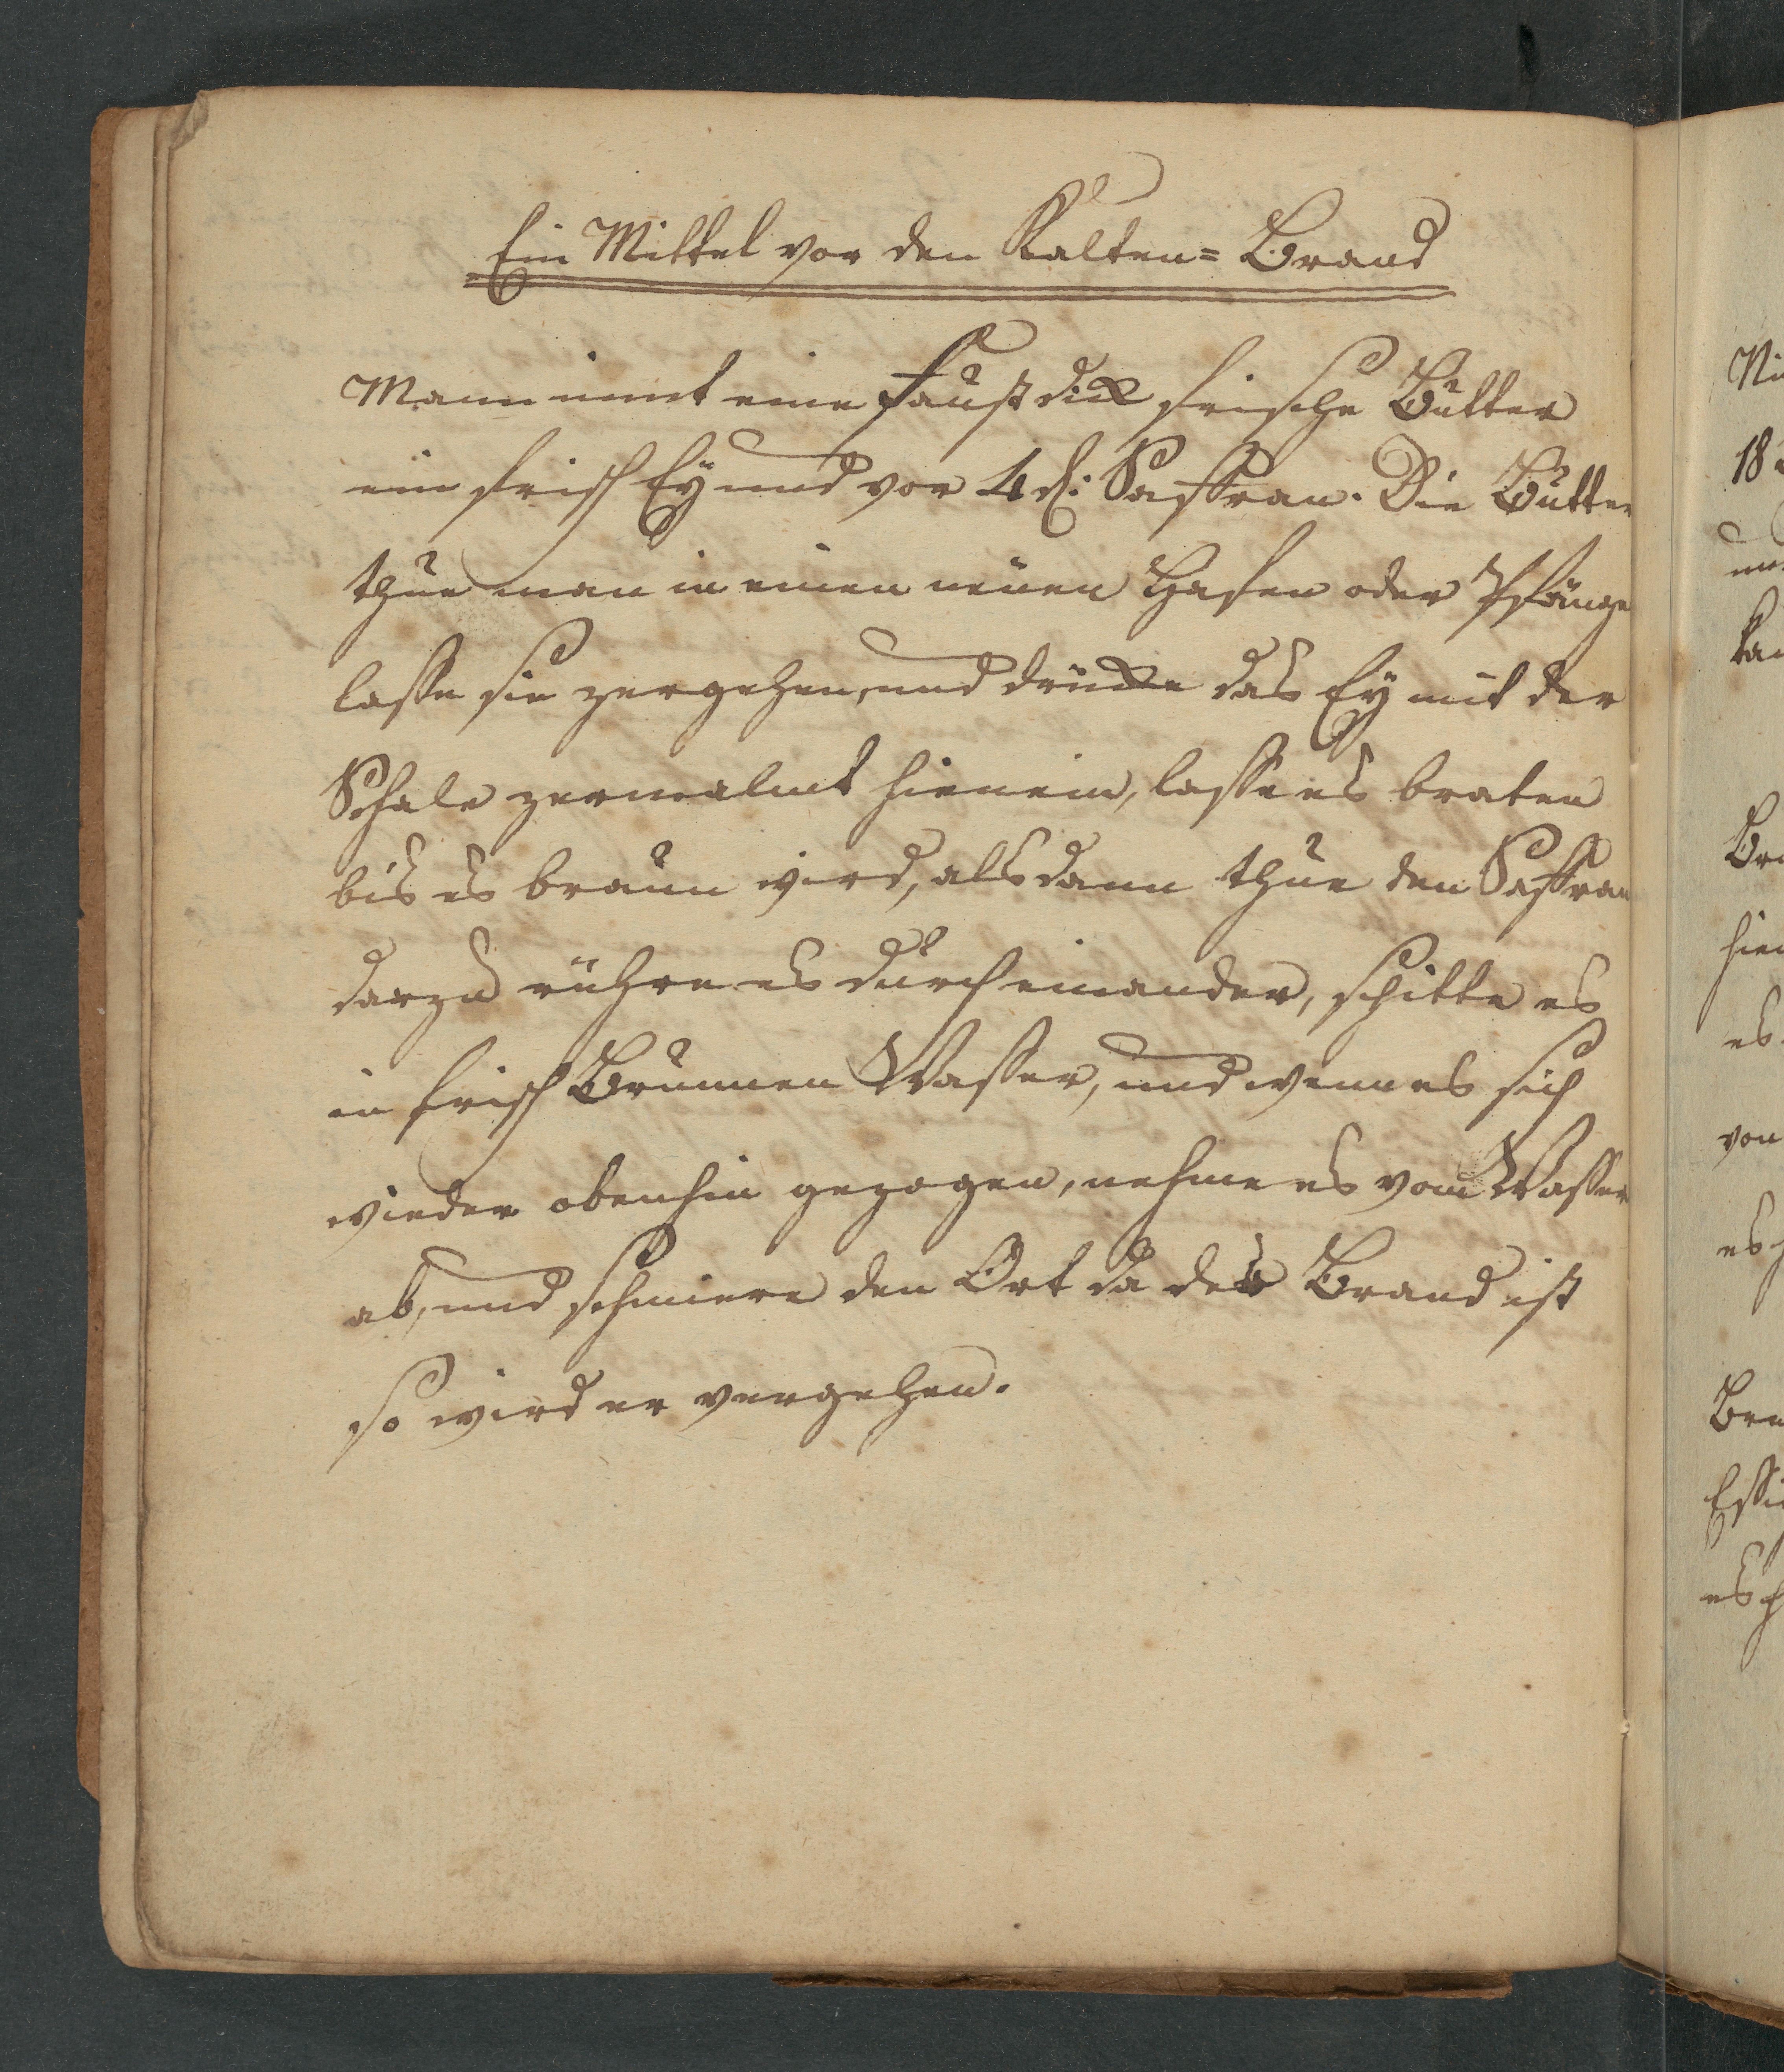 Ein Mittel vor den Kalten= Brand
Mann nimt eine Faust dick frische Butter
ein frisch Ey und vor 4 d: Saffran. Die Butter
thue man in einen neuen Hafen oder Pfänge
lasse sie zergehen, und drücke das Ey mit der
Schale zermalmt hienein, lasse es braten
bis es braun wird, alsdann thue den Saffran
darzu rühre es durcheinander, schitte es
in frisch Brunnen Wasser, und wenn es sich
wieder obenhin gezogen, nehme es vom Wasser
ab, und schmiere den Ort da der Brand ist
so wird er vergehen.